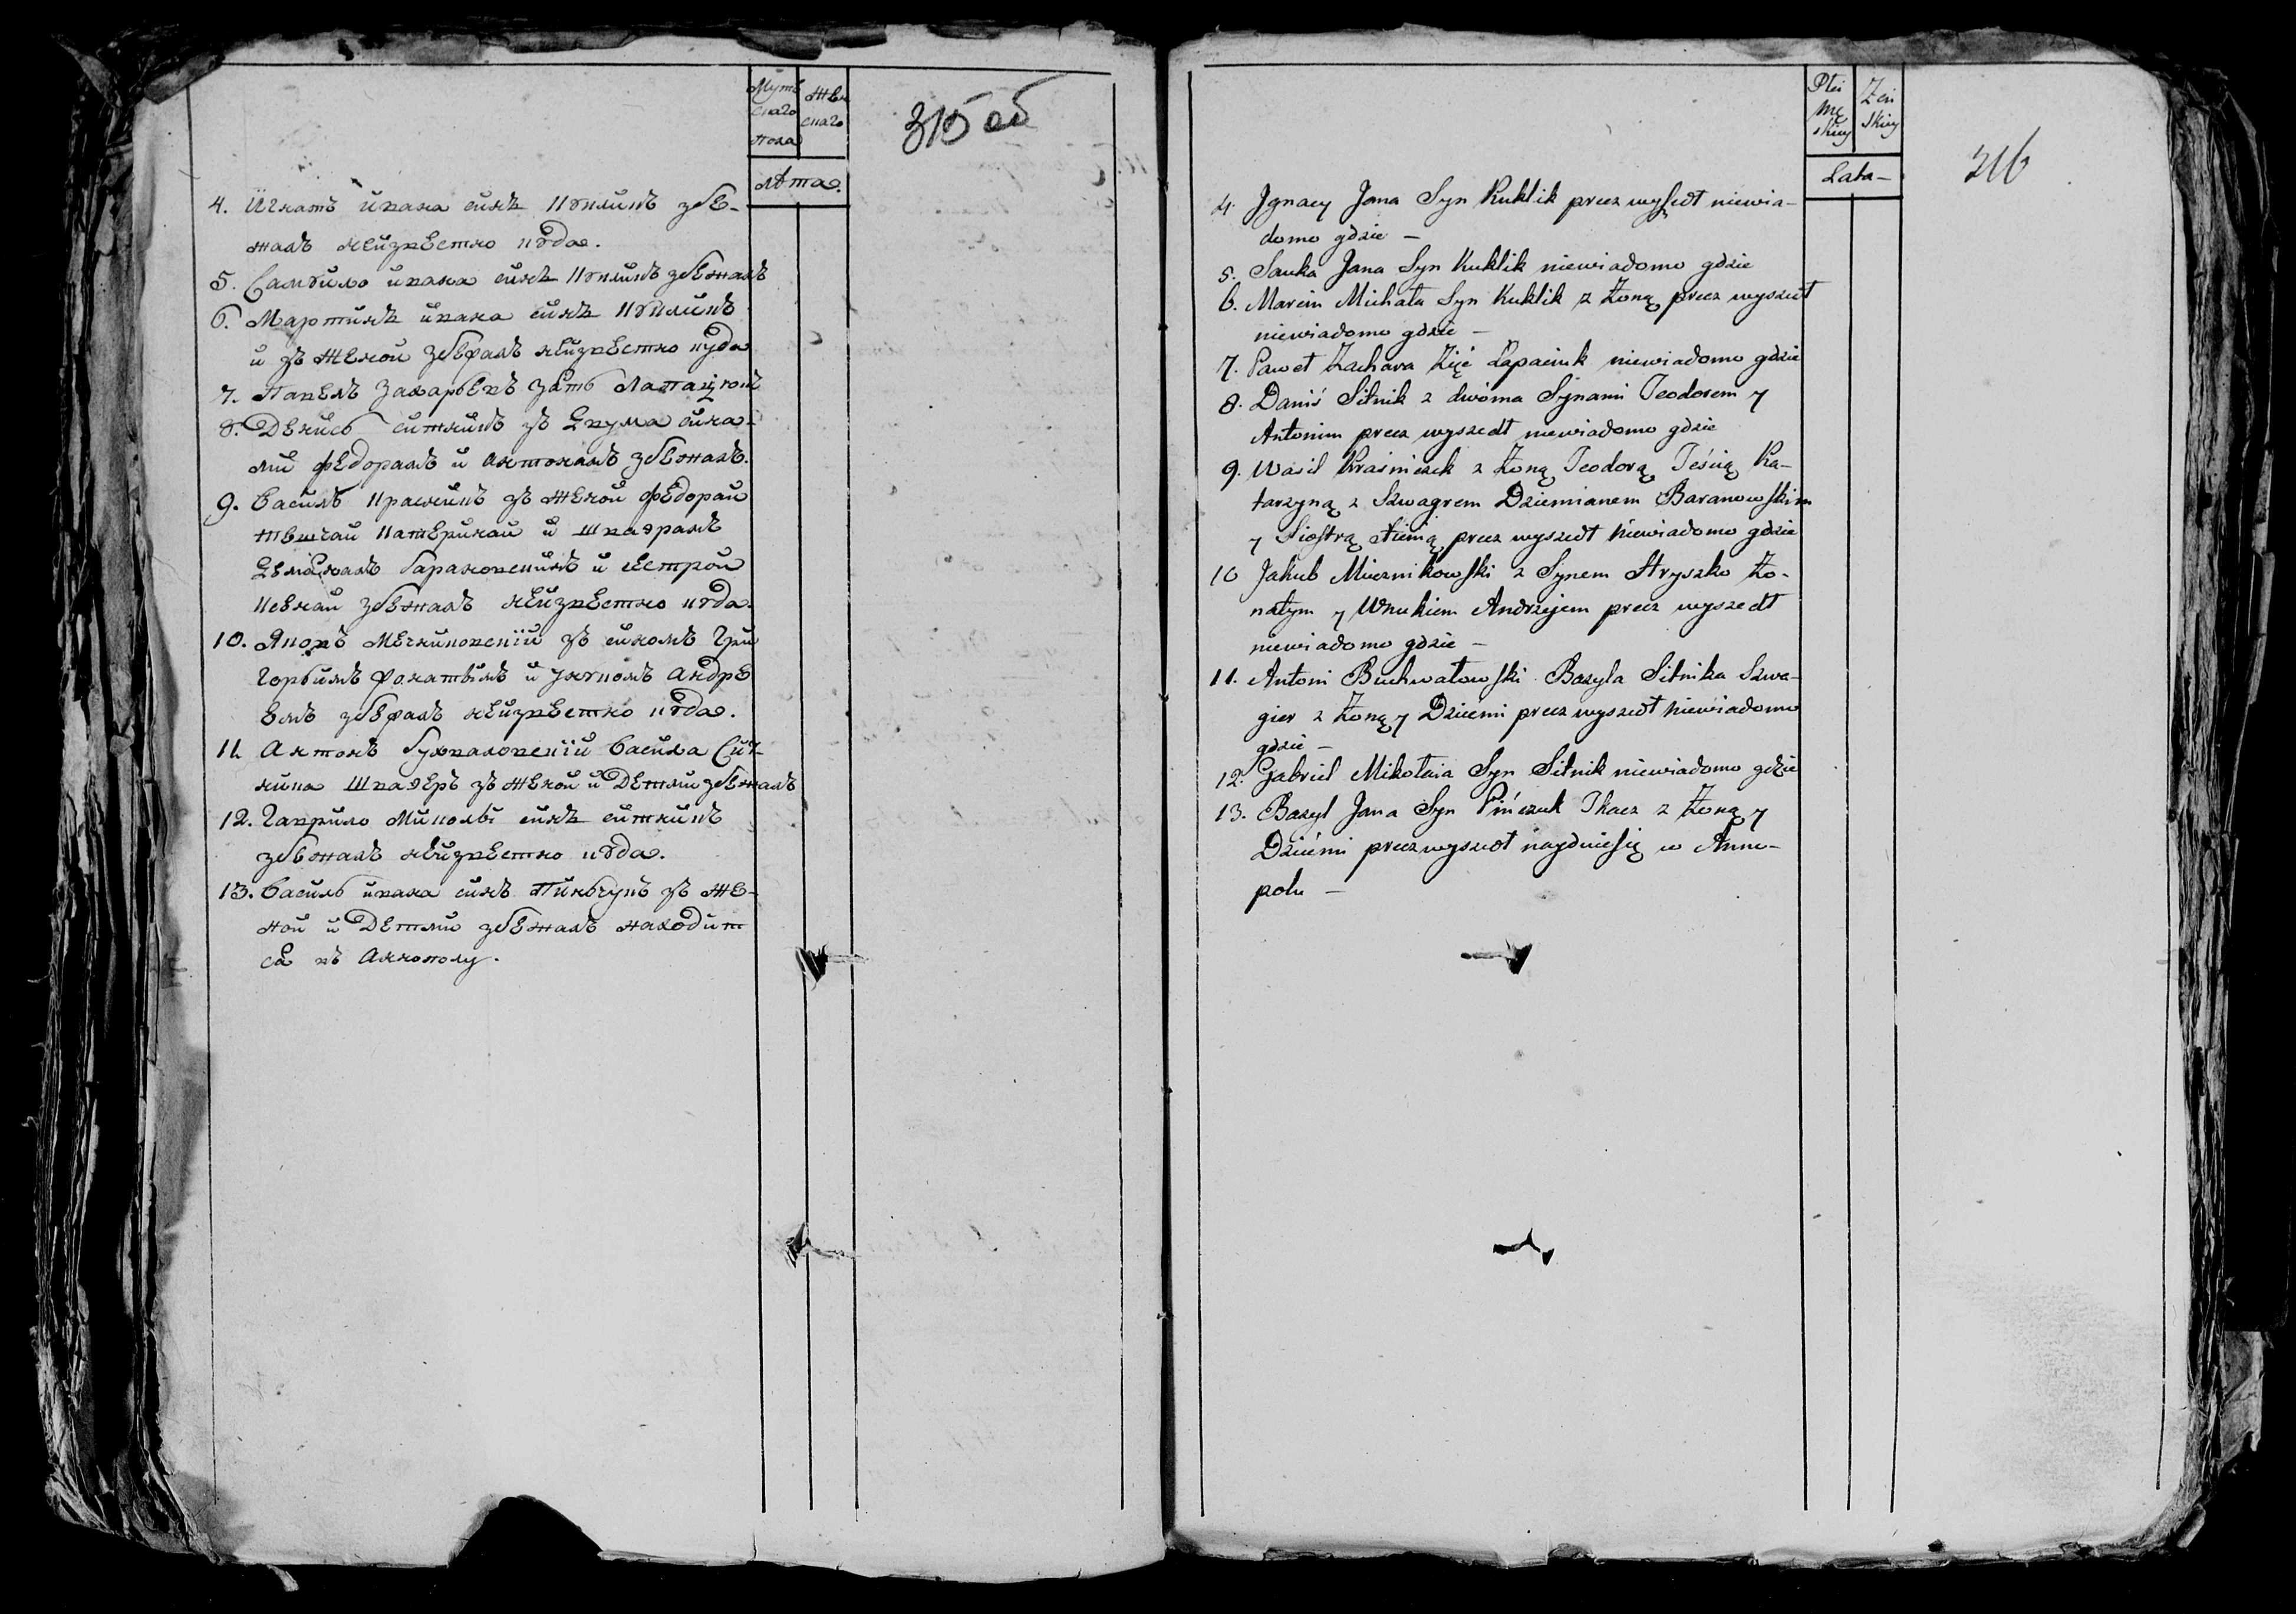 Мужескаго пола
Женскаго
Лѣта.
315 об
4. Игнатъ ивана синъ Кукликъ збе-
жалъ неизвестно куда.
5. Самуйло ивана синъ Кукликъ збежалъ
6. Мартинъ ивана синъ Кукликъ
и зъ женой збежалъ неизвестно куда
7. Павелъ Захарьевъ зать
8. Денисъ ситникъ зъ двума сина-
ми Федорамъ и антонамъ збежалъ.
9. Василь зъ женой Федорай
тещчай Катеринай и шваграмъ
Демьянамъ барановскимъ и сестрой
збежалъ неизвестно куда.
10. Яковъ Мечниковскiй зъ синомъ Гри
горьимъ и унукомъ андре
емъ збежалъ неизвестно куда.
11. антонъ бухваловскiй Василя Сит-
ника швагеръ зъ женой и Детми збежалъ
12. Гаврило Миколы синъ ситникъ
збежалъ неизвестно куда.
13. Василь ивана синъ Пинчукъ зъ же-
ной и Детми збежалъ находит
са въ аннополу.
Płci
Mę
skiey
Żeń
skiey
Lata –
316
4. Jgnacy Jana Syn Kuklik precz wyszedł niewia–
domo gdzie –
5. Sauka Jana Syn Kuklik niewiadomo gdzie
6. Marcin Michała Syn Kuklik z Żoną precz wyszedł
niewiadomo gdzie –
7. Paweł Zachara Zięć Łapaciuk niewiadomo gdzie
8. Daniś Sitnik z dwóma Synami Teodorem y
Antonim precz wyszedł niewiadomo gdzie
9. Wasil z Żoną Teodorą Teścią Ka–
tarzyną z Szwagrem Dziemianem Baranowskim
y Siostrą precz wyszedł niewiadomo gdzie
10 Jakub Miecznikowski z Synem Hryszko Żo-
natym y Wnukiem Andrzejem precz wyszedł
niewiadomo gdzie –
11. Antoni Buchwałowski Bazyla Sitnika Szwa–
gier z Żoną y Dziećmi precz wyszedł niewiadomo
gdzie –
12. Gabriel Mikołaia Syn Sitnik niewiadomo gdzie
13. Bazyl Jana Syn Pińczuk Tkacz z Żoną y
Dziećmi precz wyszedł naydzie się w Anno–
polu –